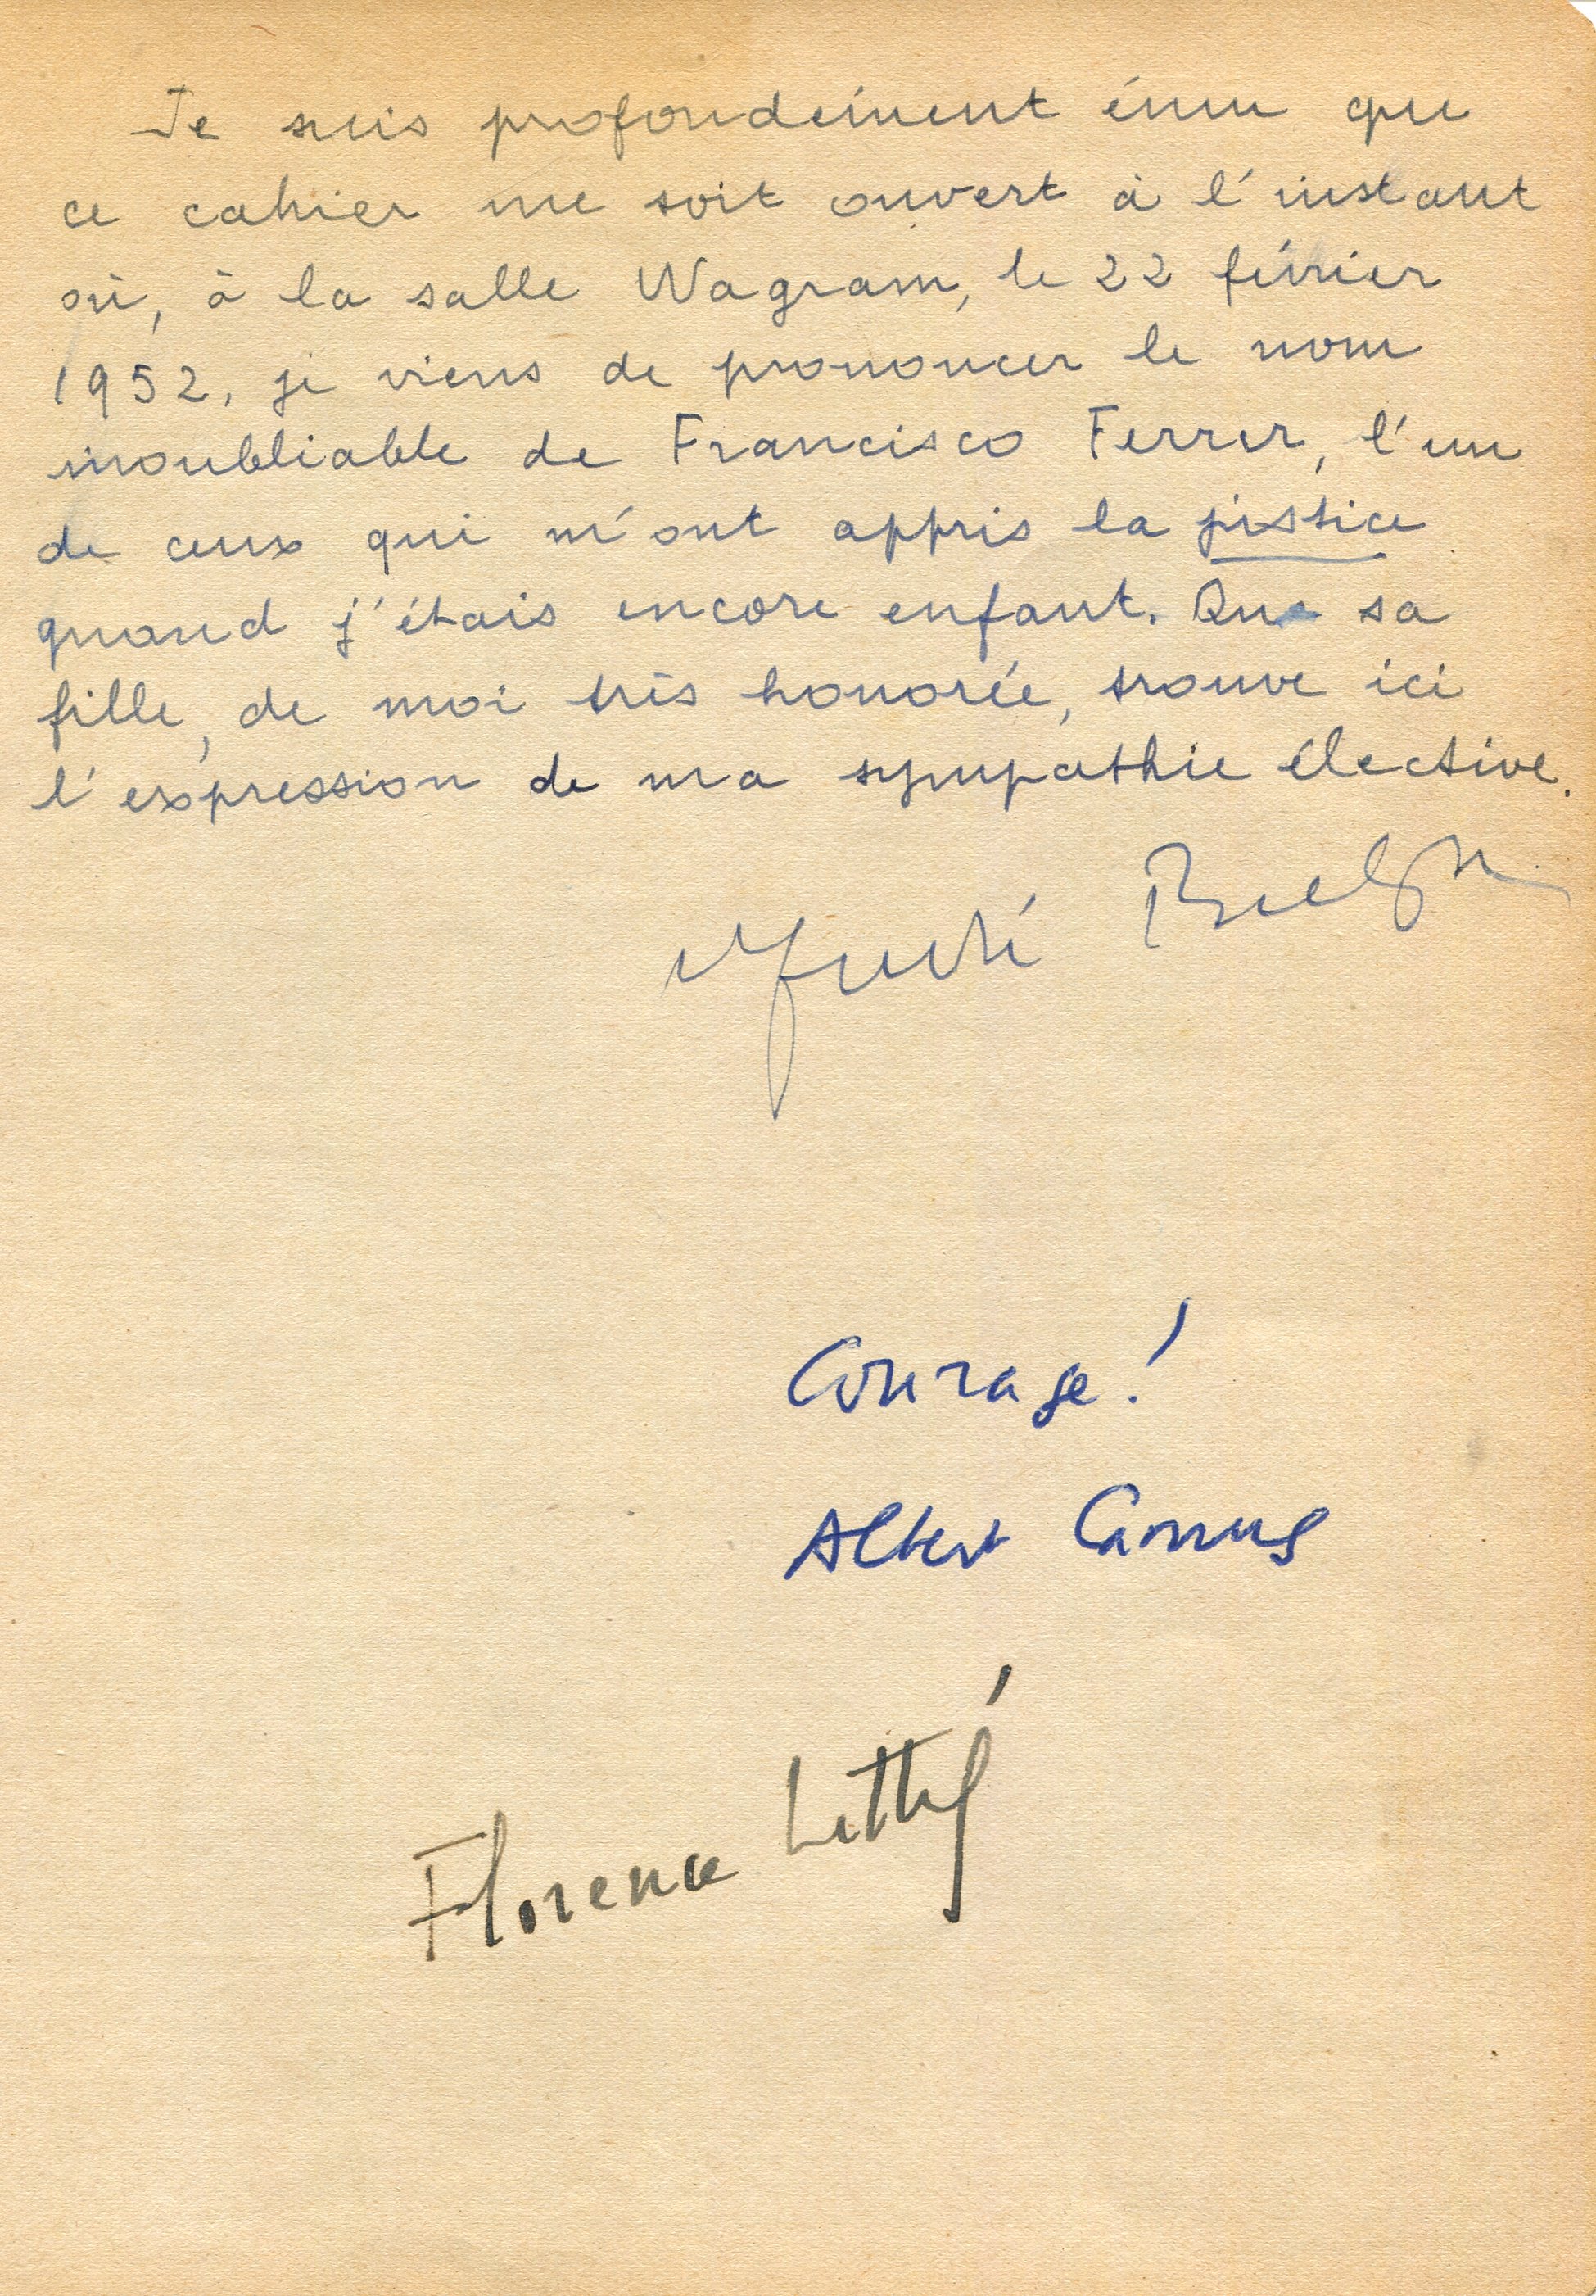 Je suis profondément ému que
ce cahier me soit ouvert à l'instant
où, à la salle Wagram, le 22 février
1952, je viens de prononcer le nom
inoubliable de Francisco Ferrer, l'un
de ceux qui m'ont appris la justice
quand j'étais encore enfant. Que sa
fille, de moi très honorée, trouve ici
l'expression de ma sympathie élective.
André Breton
Courage!
Albert Camus
Florence Littré